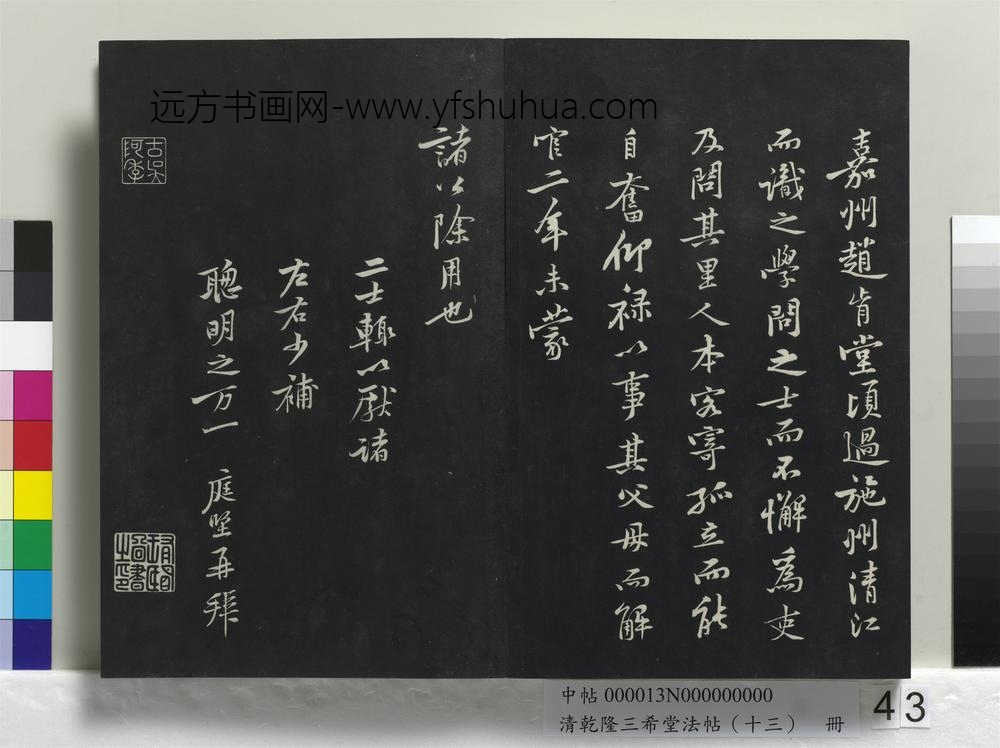 远方书画网-www.yfshuhua.com
嘉州趙肯堂頃過施州清江
而識之學問之士而不懈爲吏
及問其里人本客寄孤立而能
自奮仰禄以事其父母而解
官二年未蒙
諸公除用也
二士輙以獻諸
左右少補
聰明之万一 庭堅再拜
中帖 000013N000000000
清乾隆三希堂法帖（十三） 冊
43